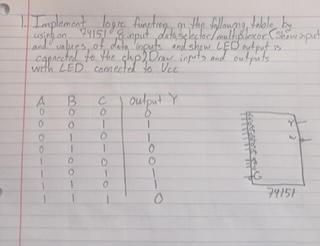 1. Implement logic function in the following table by
using an 74151 8 input dataselector/multiplexor (Show input
and values of data inputs and show LED output is
connected to the chip) Draw inputs and outputs
with LED connected to Vcc
A B C output Y
0 0 0 0
0 0 1 1
0 1 0 1
0 1 1 0
1 0 0 0
1 0 1 1
1 1 0 1
1 1 1 0
Y
G
74151